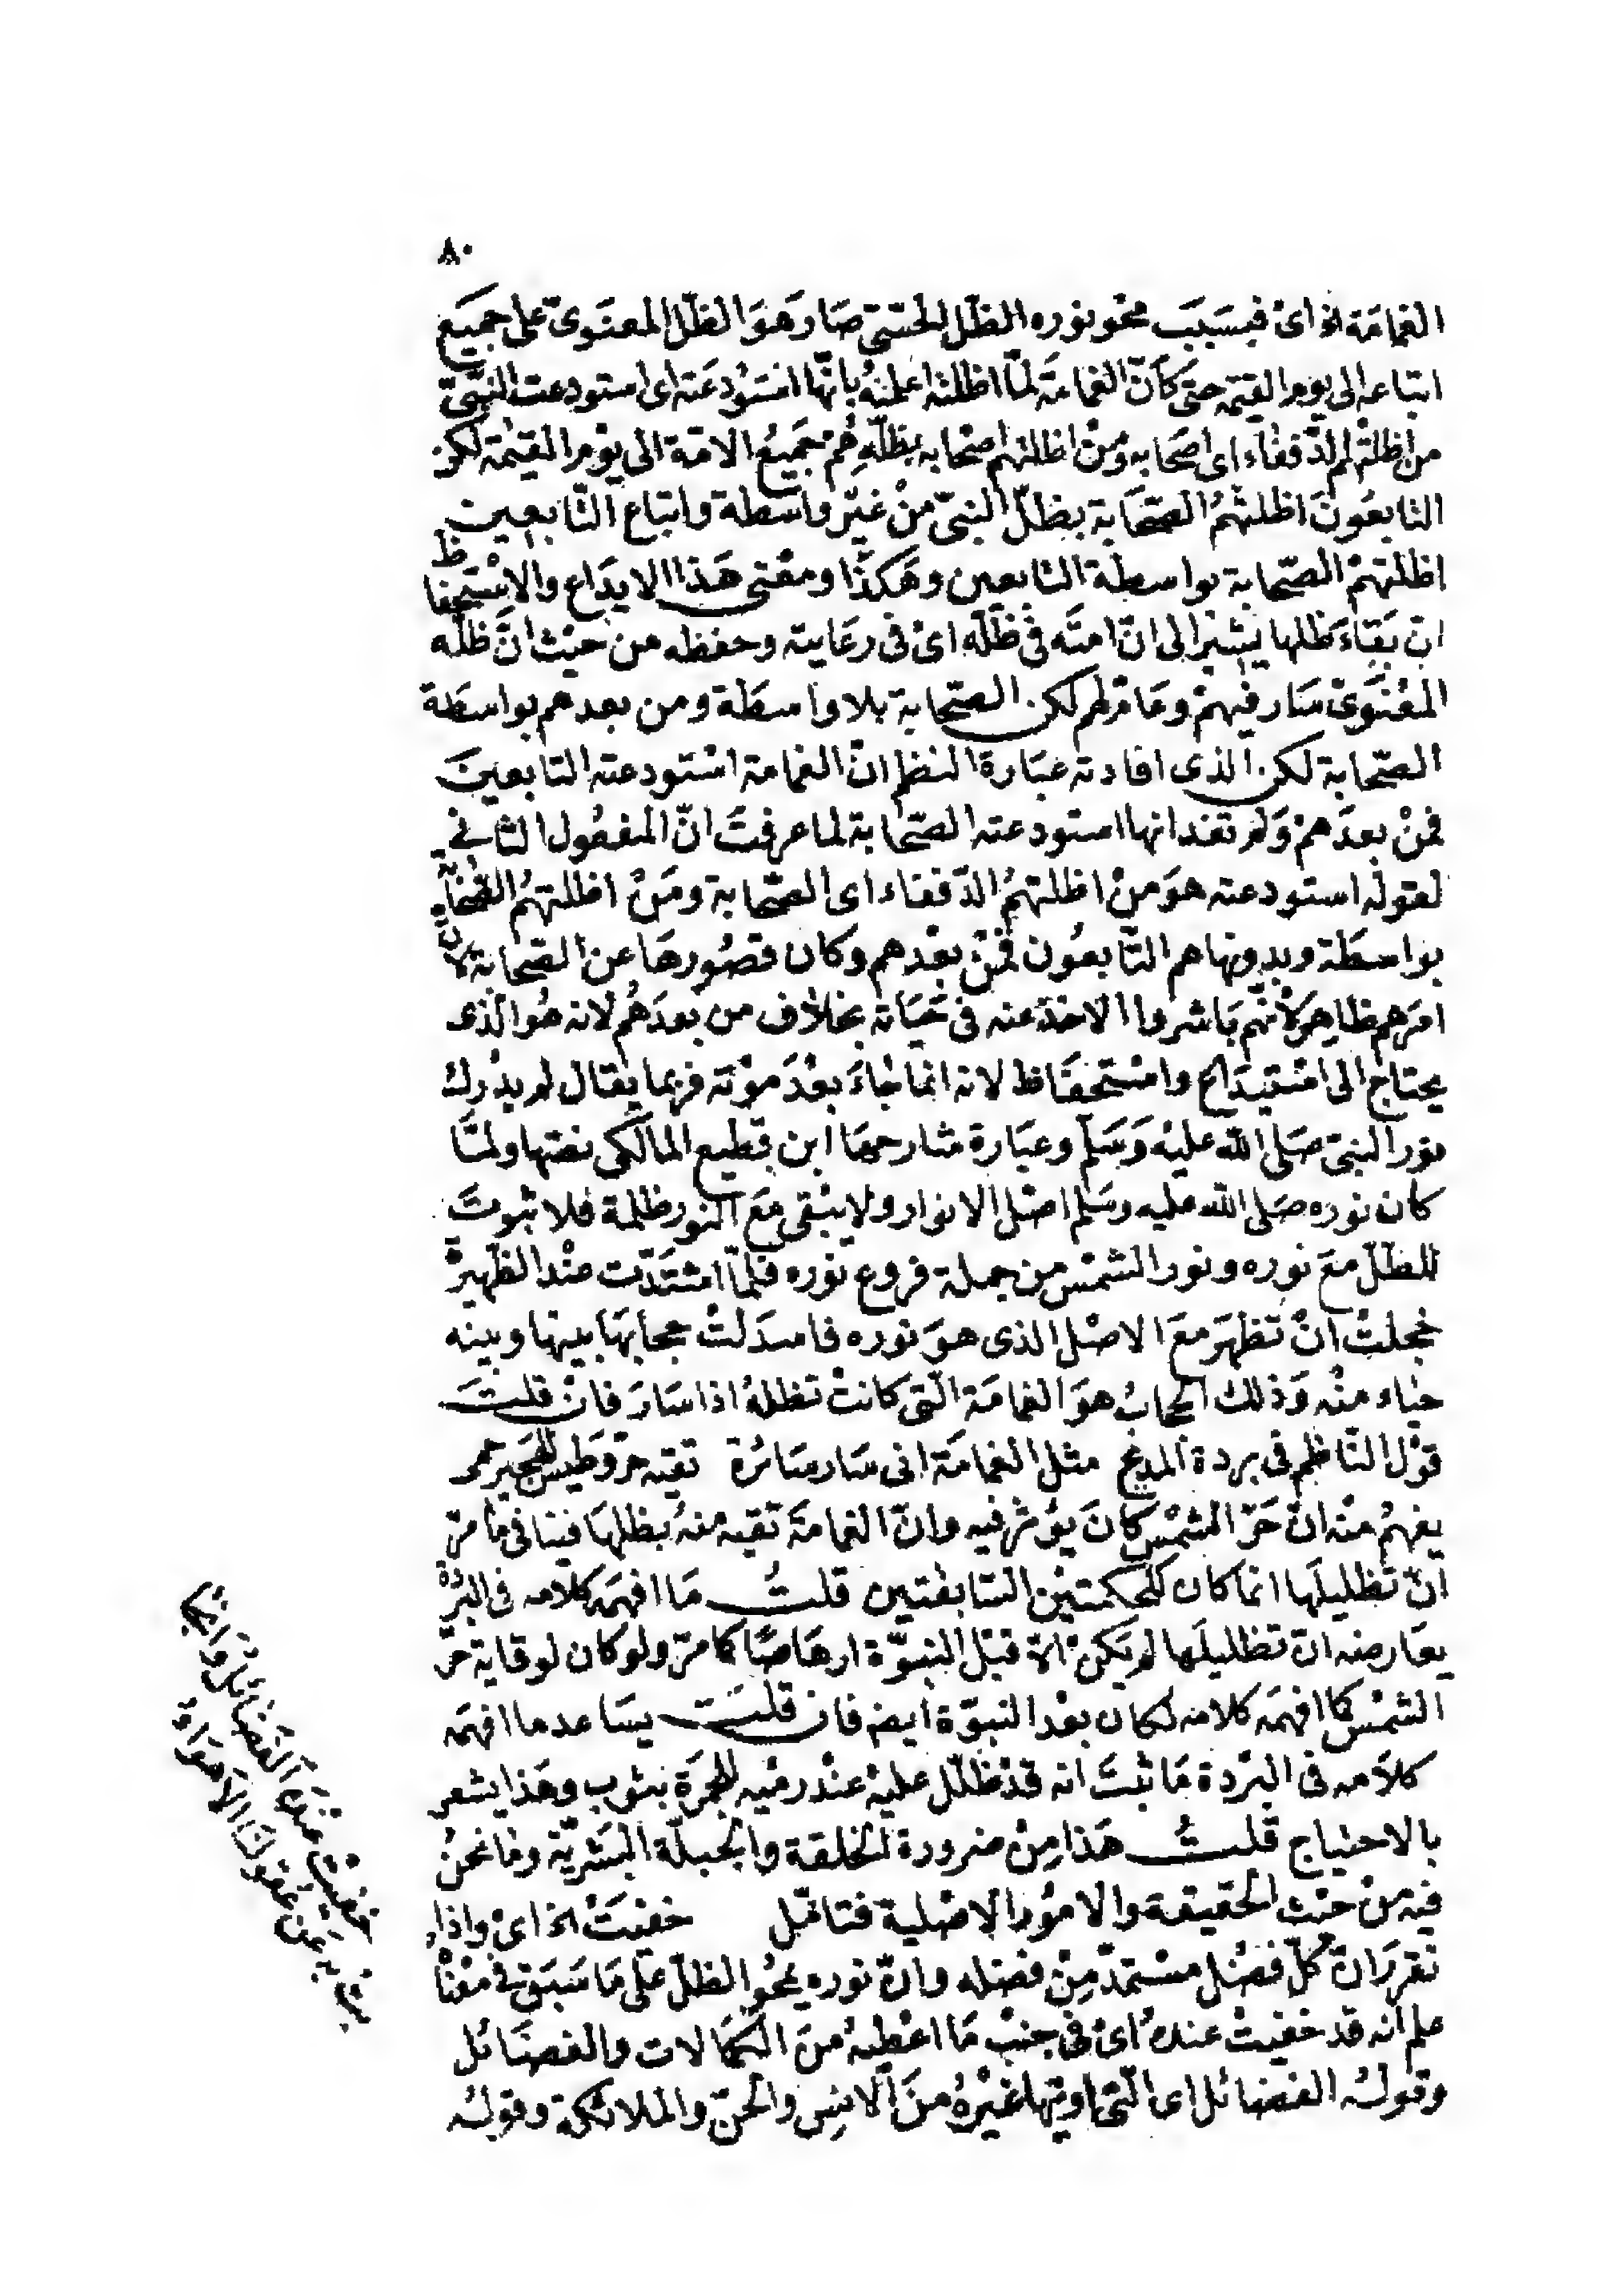 ٨٠
الغمامة الخ اى فبسبب محو نوره الظل الحسّى صار هو الظل المعنوىّ على جميع
اتباعه الى يوم القيمة حتى كأنّ الغمامة لمّا اظلته اعلمته بانّها استودعته اى استودعت النبىّ
من اظلتهم الدّففاء اى اصحابه ومن اظلتهم اصحابه بظلّه هم جميع الامّة الى يوم القيمة لكن
التابعون اظلتهم الصّحابة بظلّ النبىّ من غير واسطة واتباع التّابعين
اظلتهم الصّحابة بواسطة التابعين وهكذا ومعنى هذا الايداع والاستحفاظ
ان بقاء ظلها يشير الى انّ امته فى ظلّه اى فى رعايته وحفظه من حيث انّ ظلّه
المعنوىّ سار فيهم وعامّ لهم لكن الصّحابة بلا واسطة ومن بعدهم بواسطة
الصّحابة لكن الذى افادته عبارة النظم انّ الغمامة استودعته التابعين
فمن بعدهم ولم تفد انها استودعته الصّحابة لما عرفت انّ المفعول الثانى
لقوله استودعته هو من اظلتهم الدّففاء اى الصّحابة ومن اظلتهم الصّحابة
بواسطة وبدونها هم التّابعون فمن بعدهم وكان قصورها عن الصّحابة لانّ
امرهم ظاهر لأنّهم باشروا الاخذ عنه فى حياته بخلاف من بعدهم لانه هو الذى
يحتاج الى استيداع واستحفاظ لانه انما جاء بعد موته فربما يقال لم يدرك
نور النبىّ صلى الله عليه وسلم وعبارة شارحها ابن قطيع المالكى نصّها ولمّا
كان نوره صلى الله عليه وسلم اصل الانوار ولا يبقى مع النور ظلمة فلا ثبوت
للظّل مع نوره ونور الشمس من جملة فروع نوره فلمّا اشتدّت عند الظّهيرة
خجلت ان تظهر مع الاصل الذى هو نوره فاسدلت حجابها بينها وبينه
حياء منه وذلك الحجاب هو الغمامة الّتى كانت تظله اذا سار فان قلت
قول النّاظم فى بردة المديح مثل الغمامة انى سار سائرة تقيه حرّ وطيس للهجير حمى
يفهم منه انّ حرّ الشمس كان يؤثر فيه وانّ الغمامة تقيه منه بظلها فينافى ما مرّ
انّ تظليلها انما كان للحكمتين السّابقتين قلت ما افهمه كلامه فى البردة
يعارضه انّ تظليلها لم يكن الاّ قبل النبوّة ارهاصًا كما مرّ ولو كان لوقاية حرّ
الشمس كما افهمه كلامه لكان بعد النبوّة ايضا فان قلت يساعد ما افهمه
كلامه فى البردة ما ثبت انه قد ظلّل عليه عند رميه للجمرة بثوب وهذا يشعر
بالاحتياج قلت هذا من ضرورة الخلقة والجبلّة البشريّة وما نحن
فيه من حيث الحقيقة والامور الاصلية فتامّل خفيت الخ اى واذا
تقرر انّ كلّ فضل مستمدّ من فضله وانّ نوره يمحو الظلّ على ما سبق فى معناه
علم انه قد خفيت عنده اى فى جنب ما اعطيه من الكمالات والفضائل
وقوله الفضائل اى الّتى اوتيها غيره من الانس والجنّ والملائكة وقوله
خفيت عنده الفضائل وانجا
بت به عن عقولنا الاهواء